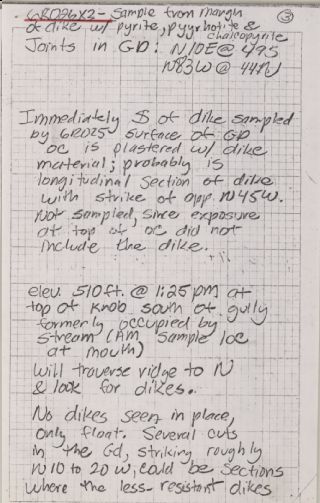 GRD26X2 - Sample from margin ③
of dike w/ pyrite, pyyrhotite &
chalcopyrite
Joints in GD: N10E@ 49S
N83W @ 44N
Immediately S of dike sampled
by GRD25 surface of GD
oc is plastered w/ dike
material; probably is
longitudinal section of dike
with strike of app. N45W.
Not sampled, since exposure
at top of oc did not
include the dike.
elev. 510ft. @ 1:25 pm at
top of knob south of gully
formerly occupied by
stream (AM sample loc
at mouth)
Will traverse ridge to N
& look for dikes.
No dikes seen in place,
only float. Several cuts
in the Gd, striking roughly
N 10 to 20 W; could be sections
where the less-resistant dikes